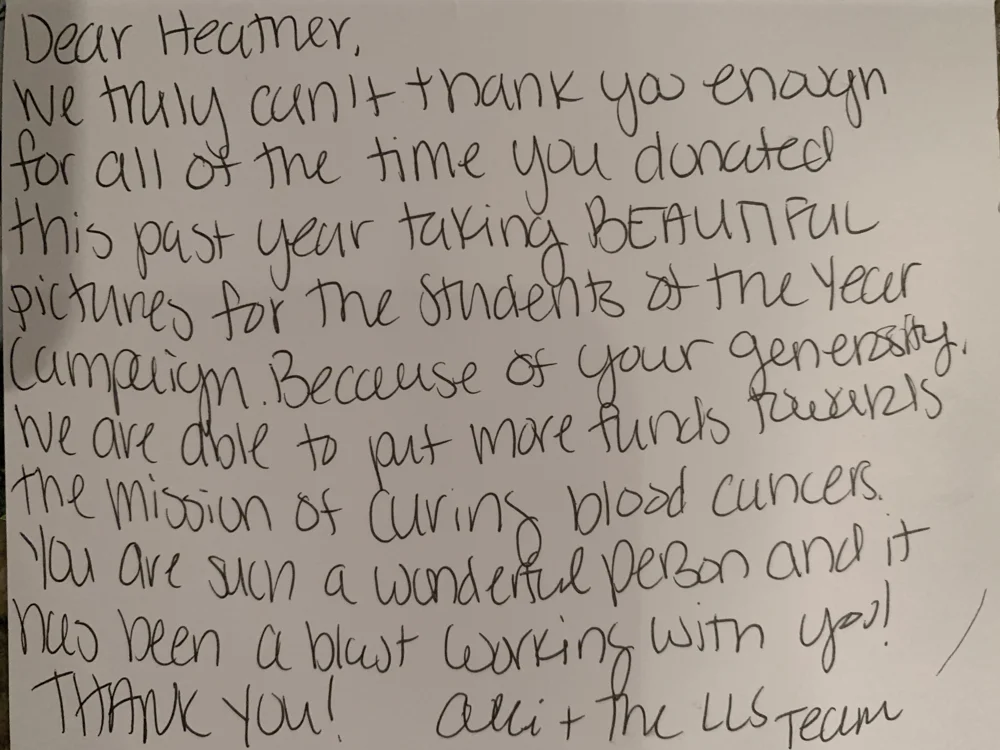 Dear Heather,
We truly can't thank you enough
for all of the time you donated
this past year taking BEAUTIFUL
pictures for the Students of the Year
Campaign. Because of your generosity,
we are able to put more funds towards
the mission of curing blood cancers.
You are such a wonderful person and it
has been a blast working with you!
THANK YOU! Alli + The LLS Team